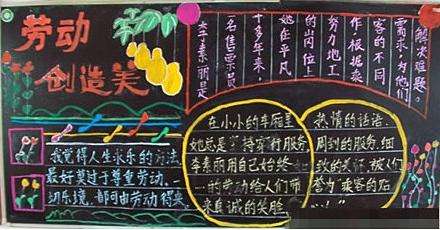 劳动
创造美
李素丽是
名售票员
十多年来，
她在平凡
的岗位上
努力地工
作，根据乘
客的不同
需求，为他们
解决难题。
我觉得人生求乐的方法
最好莫过于尊重劳动。一
切乐境，都可由劳动得来
在小小的车厢里
她总是持穿行服务
李素丽用自己始终
一的劳动给人们带
来真诚的笑脸，
热情的话语、
周到的服务、细
致的关怀，被人们
誉为“乘客的贴